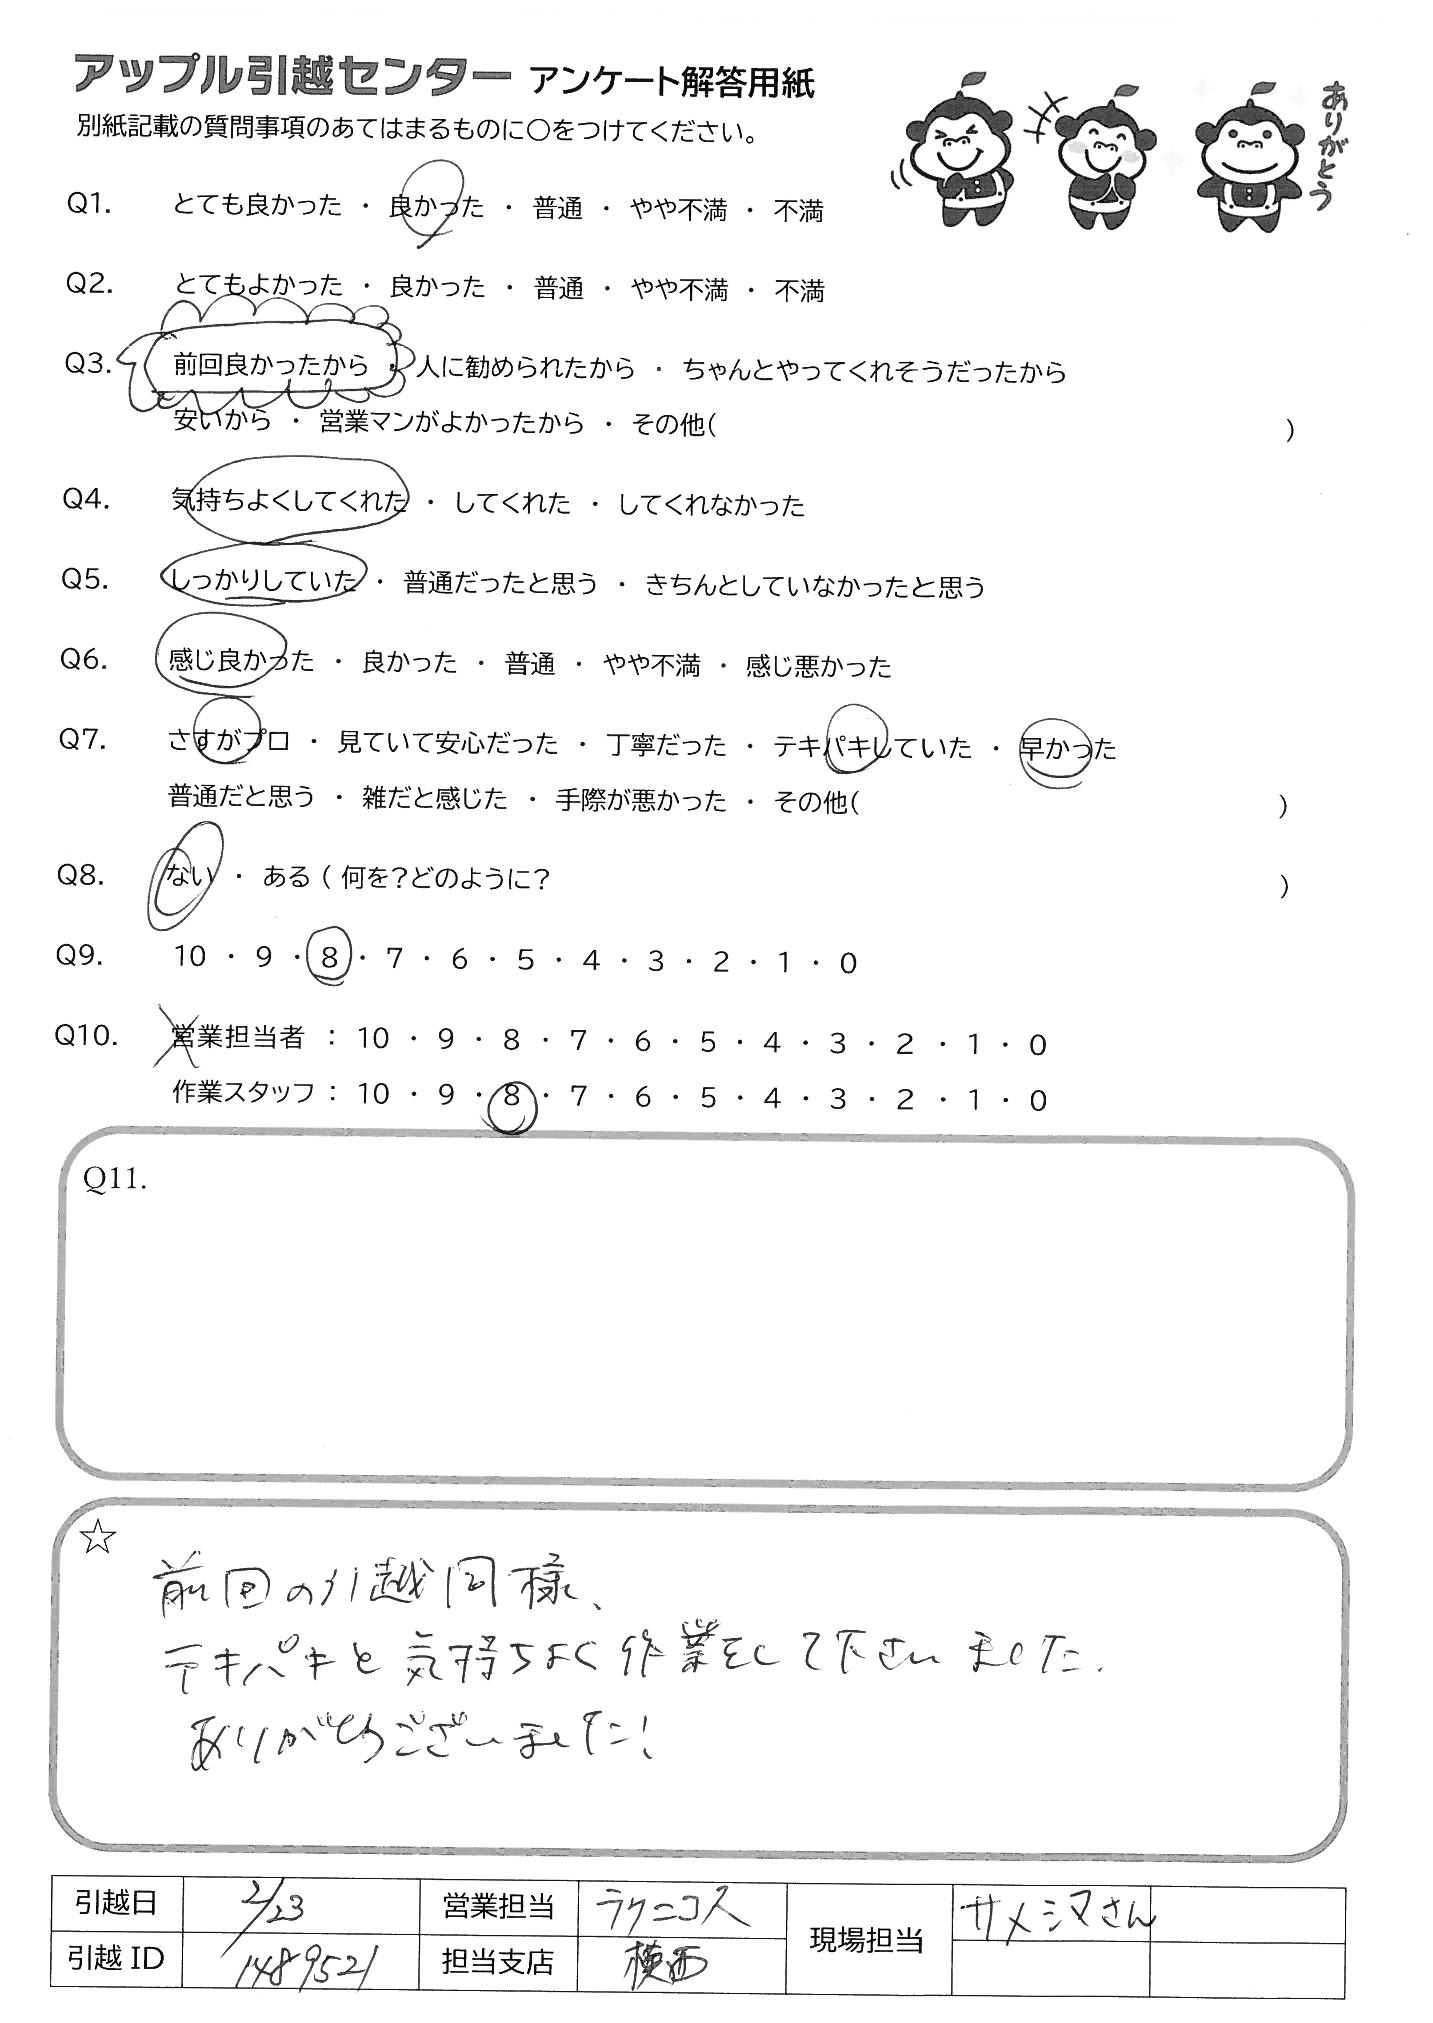 アップル引越センター アンケート解答用紙
ありがとう
別紙記載の質問事項のあてはまるものに○をつけてください。
Q1. とても良かった ・ 良かった ・ 普通 ・ やや不満 ・ 不満
Q2. とてもよかった ・ 良かった ・ 普通 ・ やや不満 ・ 不満
Q3. 前回良かったから ・ 人に勧められたから ・ ちゃんとやってくれそうだったから
安いから ・ 営業マンがよかったから ・ その他( )
Q4. 気持ちよくしてくれた ・ してくれた ・ してくれなかった
Q5. しっかりしていた ・ 普通だったと思う ・ きちんとしていなかったと思う
Q6. 感じ良かった ・ 良かった ・ 普通 ・ やや不満 ・ 感じ悪かった
Q7. さすがプロ ・ 見ていて安心だった ・ 丁寧だった ・ テキパキしていた ・ 早かった
普通だと思う ・ 雑だと感じた ・ 手際が悪かった ・ その他( )
Q8. ない ・ ある ( 何を?どのように? )
Q9. 10 ・ 9 ・ 8 ・ 7 ・ 6 ・ 5 ・ 4 ・ 3 ・ 2 ・ 1 ・ 0
Q10. 営業担当者 : 10 ・ 9 ・ 8 ・ 7 ・ 6 ・ 5 ・ 4 ・ 3 ・ 2 ・ 1 ・ 0
作業スタッフ : 10 ・ 9 ・ 8 ・ 7 ・ 6 ・ 5 ・ 4 ・ 3 ・ 2 ・ 1 ・ 0
Q11.
☆
前回の引越同様、
テキパキと気持ちよく作業をして下さいました.
ありがとうございました!
引越日 2/23 営業担当 ラクニコス 現場担当 サメシマさん
引越ID 1489521 担当支店 横西